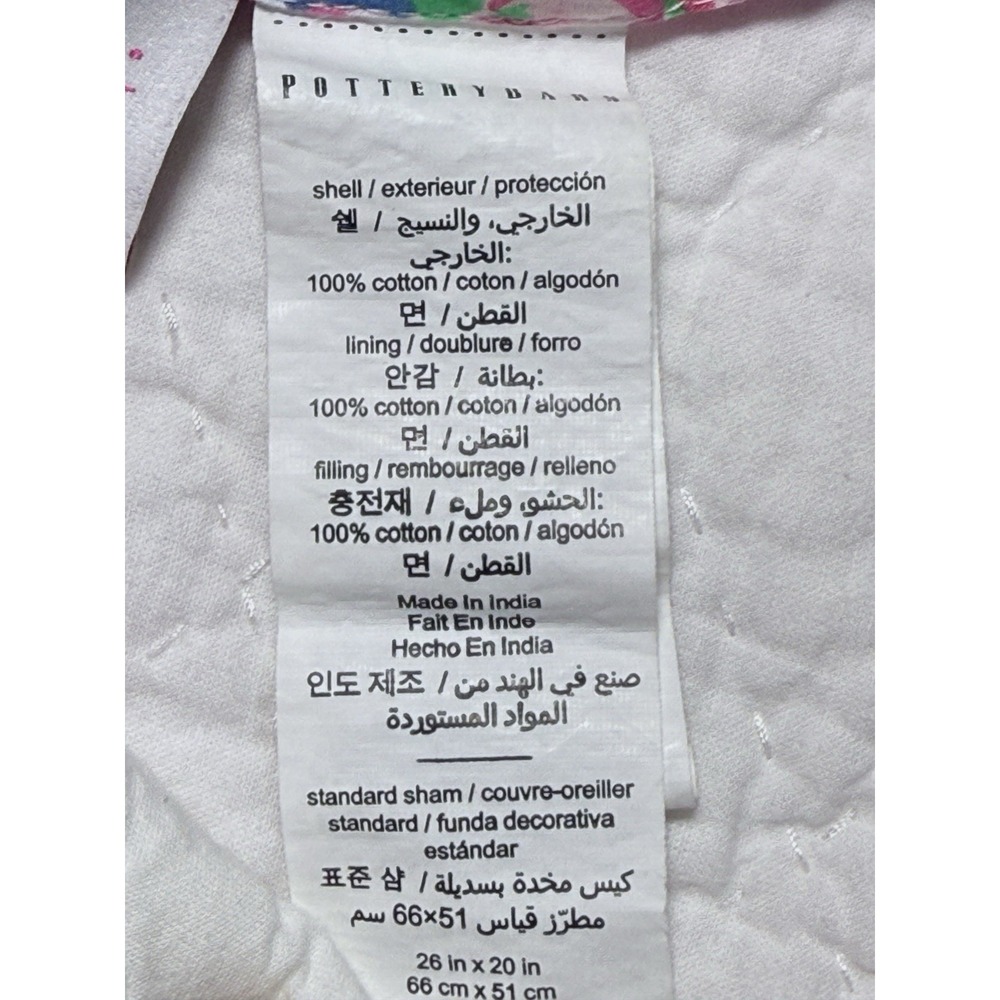 POTTERYBARN
shell / exterieur / protección
쉘 / الخارجي، والنسيج
الخارجي:
100% cotton / coton / algodón
면 / القطن
lining / doublure / forro
안감 / بطانة:
100% cotton / coton / algodón
면 / القطن
filling / rembourrage / relleno
충전재 / الحشو، وملء:
100% cotton / coton / algodón
면 / القطن
Made In India
Fait En Inde
Hecho En India
인도 제조 / صنع في الهند من
المواد المستوردة
standard sham / couvre-oreiller
standard / funda decorativa
estándar
표준 샴 / كيس مخدة بسديلة
مطرّز قياس 51×66 سم
26 in x 20 in
66 cm x 51 cm